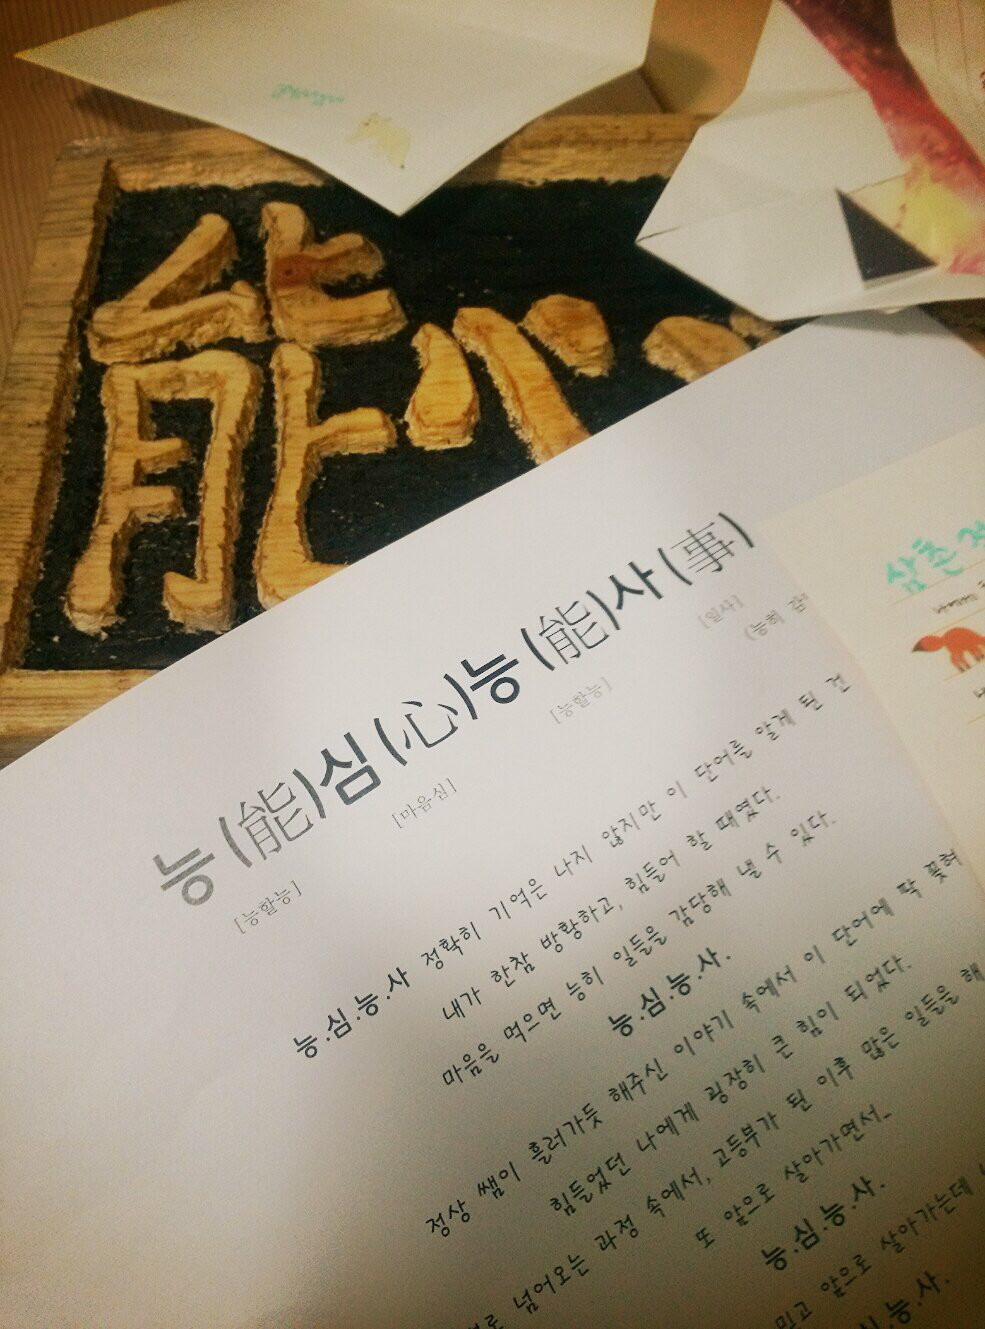 能心
능(能)심(心)능(能)사(事)
[능할능] [마음심] [능할능] [일사]
(능히 감
능.심.능.사 정확히 기억은 나지 않지만 이 단어를 알게 된 건
내가 한참 방황하고, 힘들어 할 때였다.
마음을 먹으면 능히 일들을 감당해 낼 수 있다.
능.심.능.사.
정상 쌤이 흘러가듯 해주신 이야기 속에서 이 단어에 딱 꽂혀
힘들었던 나에게 굉장히 큰 힘이 되었다.
넘어오는 과정 속에서, 고등부가 된 이후 많은 일들을 해
또 앞으로 살아가면서..
능.심.능.사.
믿고 앞으로 살아가는데
심.능.사.
삼촌
나에게